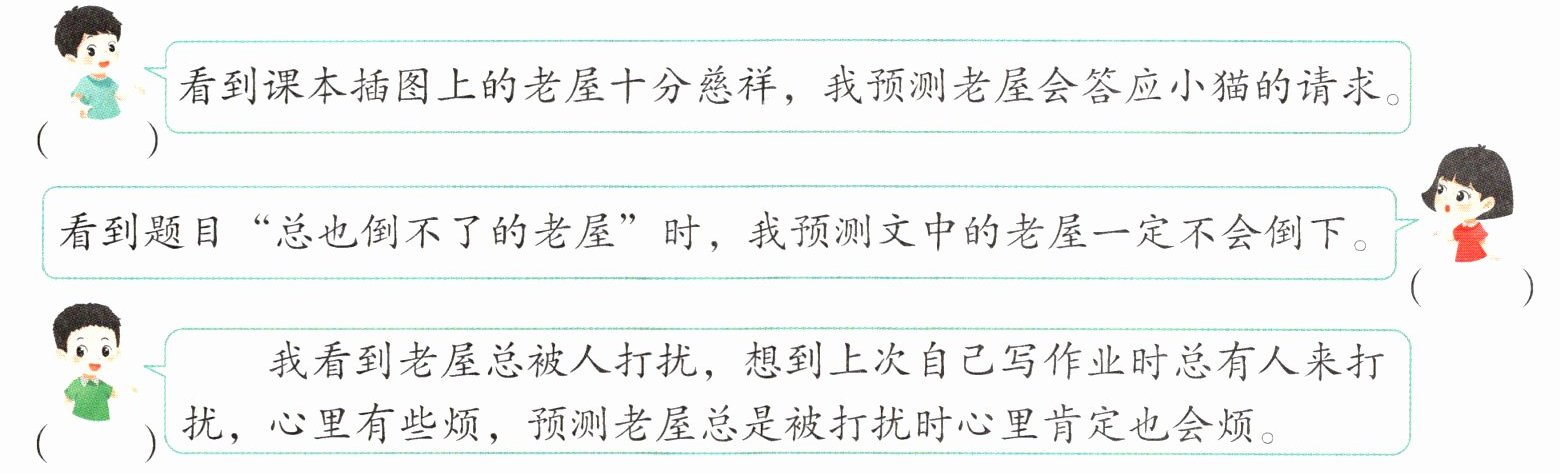 看到课本插图上的老屋十分慈祥，我预测老屋会答应小猫的请求。
(    )
看到题目“总也倒不了的老屋”时，我预测文中的老屋一定不会倒下。
(    )
我看到老屋总被人打扰，想到上次自己写作业时总有人来打
扰，心里有些烦，预测老屋总是被打扰时心里肯定也会烦。
(    )